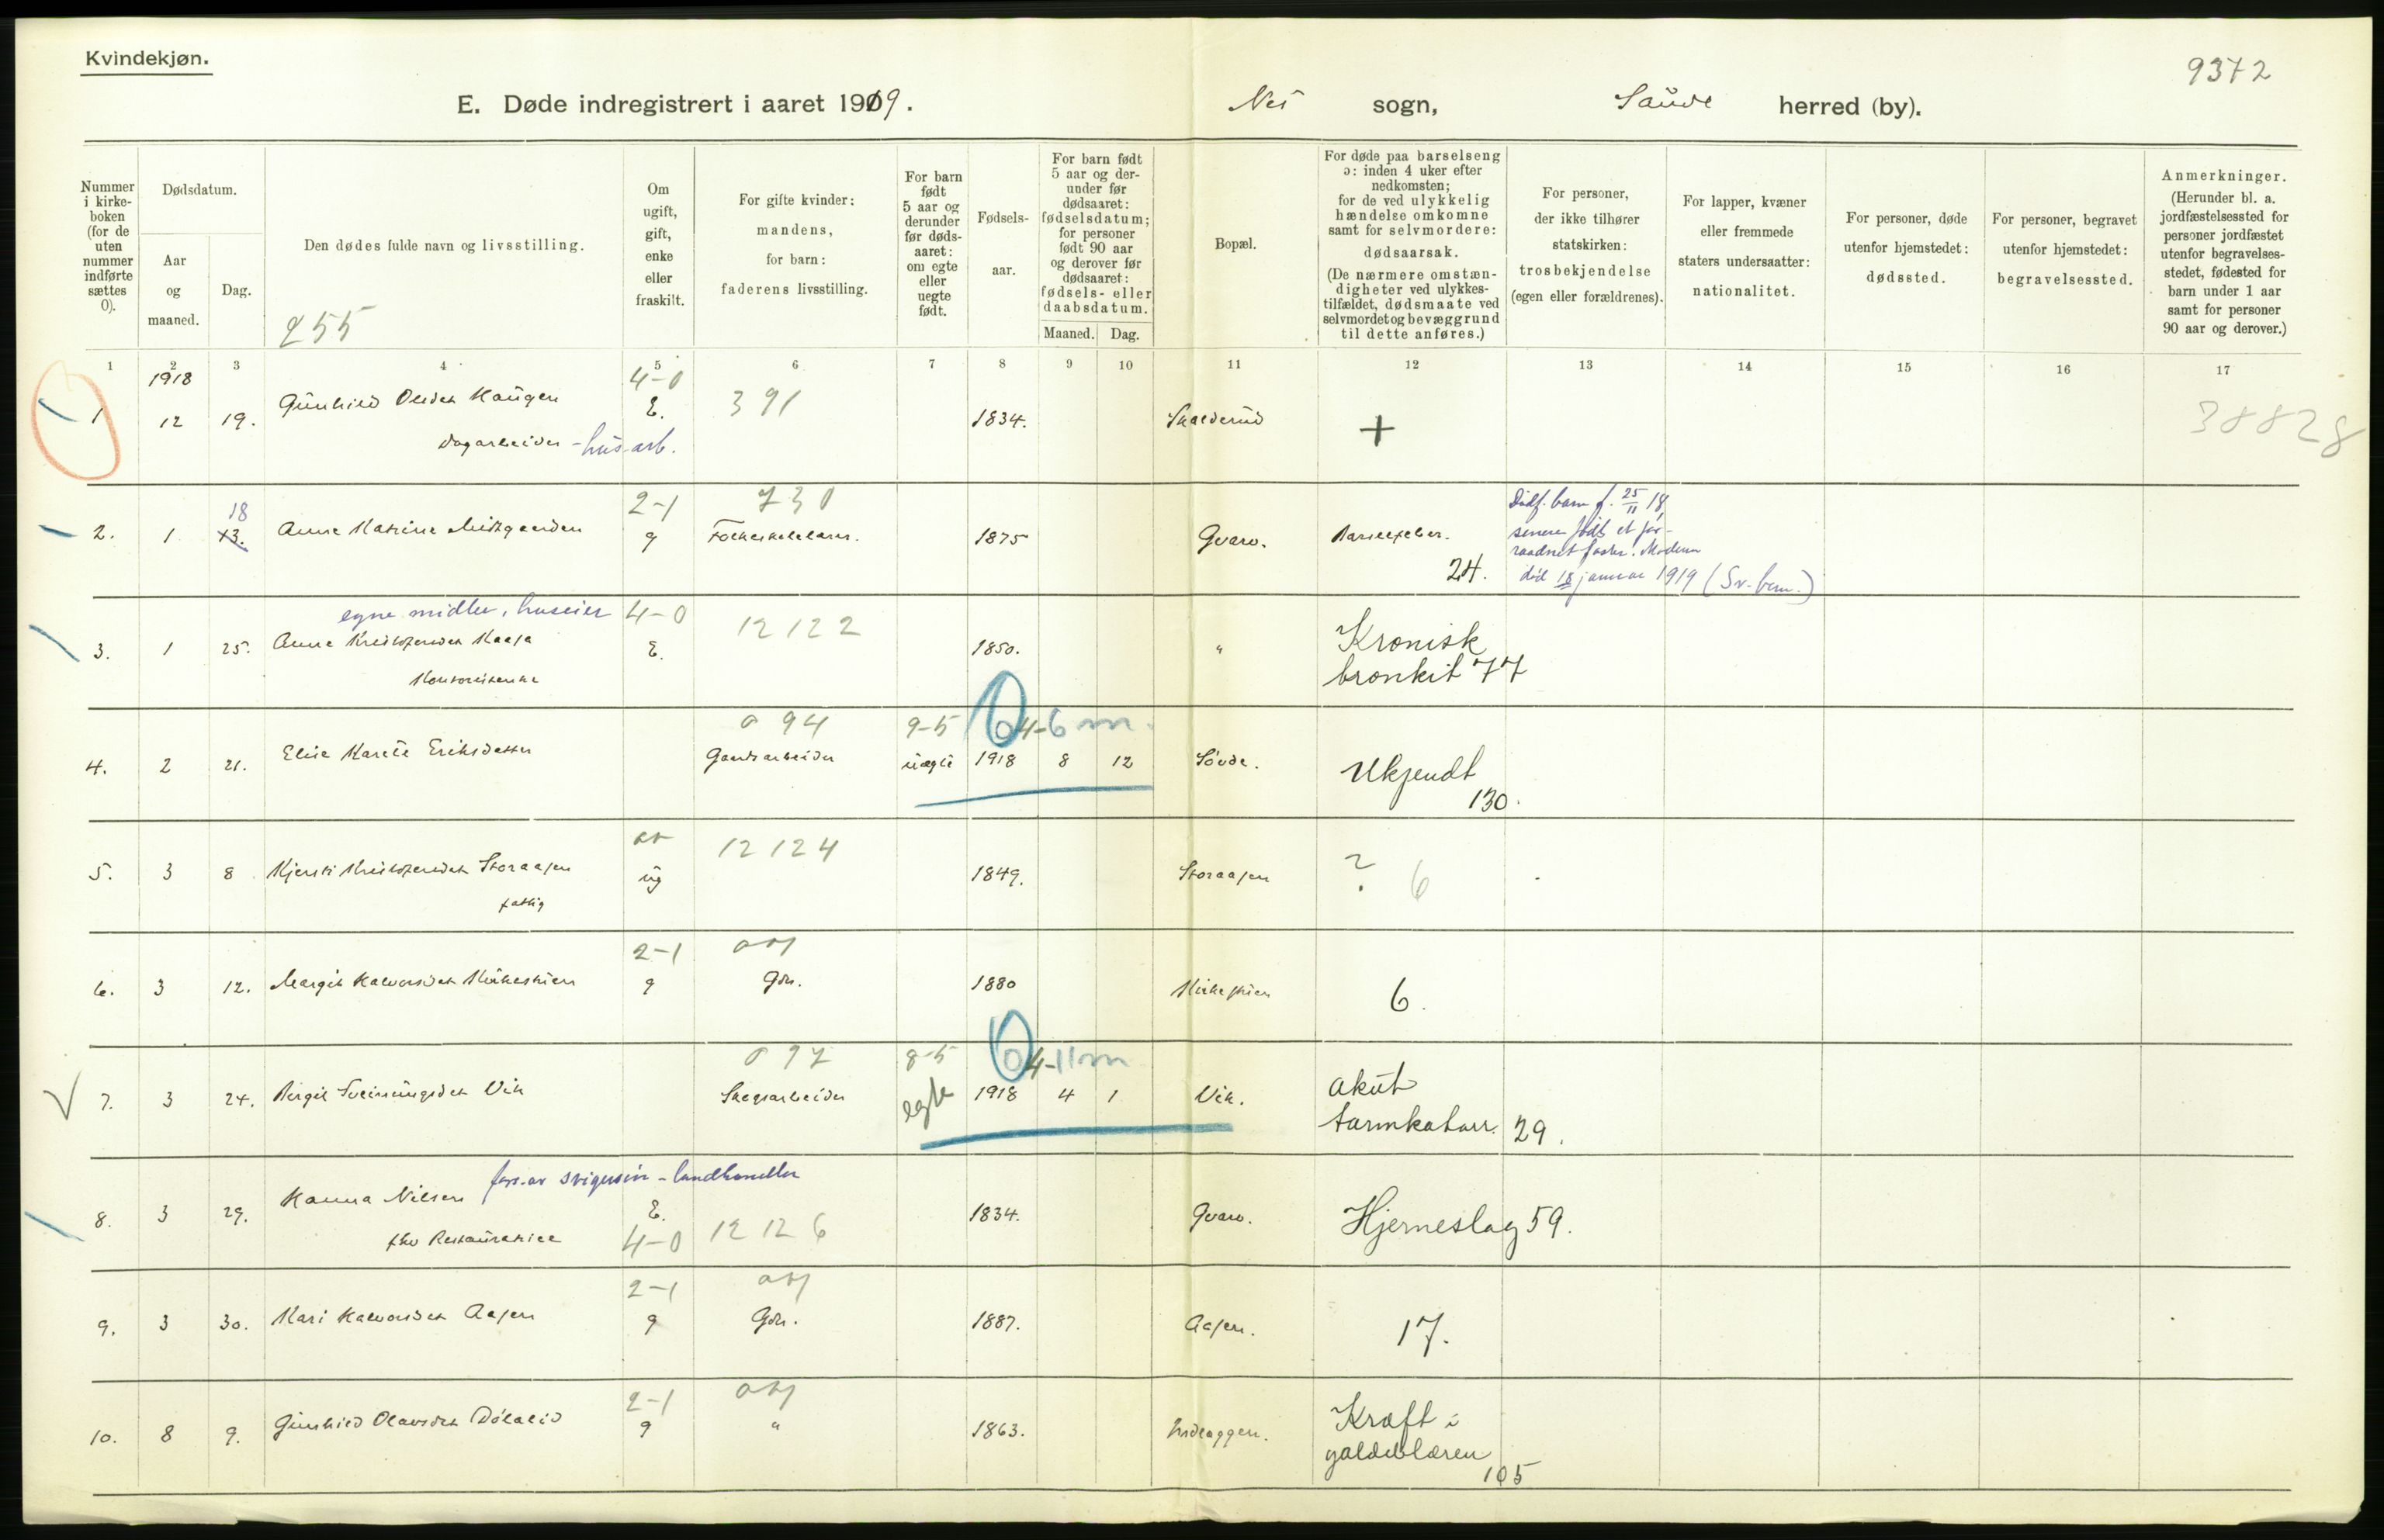 Kvindekjøn.
9372
E. Døde indregistrert i aaret 1919.
Nes sogn, Saude herred (by).
Nummer i kirke-boken (for de uten nummer indførte sættes 0).
Dødsdatum.
Aar og maaned.
Dag.
Den dødes fulde navn og livsstilling.
255
Om ugift, gift, enke eller fraskilt.
For gifte kvinder: mandens, for barn: faderens livsstilling.
For barn født 5 aar og derunder før døds-aaret: om egte eller uegte født.
Fødsels-aar.
For barn født 5 aar og der-under før dødsaaret: fødselsdatum; for personer født 90 aar og derover før dødsaaret: fødsels- eller daabsdatum.
Maaned. Dag.
Bopæl.
For døde paa barselseng ɔ: inden 4 uker efter nedkomsten; for de ved ulykkelig hændelse omkomne samt for selvmordere: dødsaarsak. (De nærmere omstæn-digheter ved ulykkes-tilfældet, dødsmaate ved selvmordet og bevæggrund til dette anføres.)
For personer, der ikke tilhører statskirken: trosbekjendelse (egen eller forældrenes).
For lapper, kvæner eller fremmede staters undersaatter: nationalitet.
For personer, døde utenfor hjemstedet: dødssted.
For personer, begravet utenfor hjemstedet: begravelsessted.
Anmerkninger. (Herunder bl. a. jordfæstelsessted for personer jordfæstet utenfor begravelses-stedet, fødested for barn under 1 aar samt for personer 90 aar og derover.)
1 2 3 4 5 6 7 8 9 10 11 12 13 14 15 16 17
1918 4-0
1 12 19. Gunhild Olsdet Haugen E. 391 1834. Skalderud + 38828
Dagarbeider - hus.arb.
18 2-1 730 Dødf. barn f. 25/11 18,
2. 1 13. Anna Katrine Midtgaarden g Folkeskolelærer. 1875 Gvarv. Barselfeber. 24.
senere født et for-
raadnet foster. Moderen
død 18 januar 1919 (Sv. bem.)
egne midler, huseier 4-0 12122
3. 1 25. Anne Kristofersdet Kaasa E. 1850. " Kronisk
bronkit 77
0 94 9-5 0 4-6 m.
4. 2 21. Elise Karete Eriksdatter Gaardsarbeider uægte 1918 8 12 Søvde. Ukjendt
130.
12124
5. 3 8 Kjersti Kristofersdet Storaasen ug 1849. Storaasen ? 6
fattig
2-1
6. 3 12. Margit Halvorsdet Kirkeskien g Gbr. 1880 6.
0 97 8-5 0 4-11 m
7. 3 24. Birgit Sveinungsdet Vik Skogsarbeider egte 1918 4 1 Vik. akut
tarmkatarr. 29.
fors. av svigersøn - landhandler
8. 3 29. Hanna Nilsen E. 1834. Gvarv. Hjerneslag 59.
fhv 4-0 12126
2-1
9. 3 30. Kari Halvorsdet Aasen g Gbr. 1887. Aasen. 17.
2-1
10. 8 9. Gunhild Olavsdet g " 1863. Kræft i
galdeblæren
105